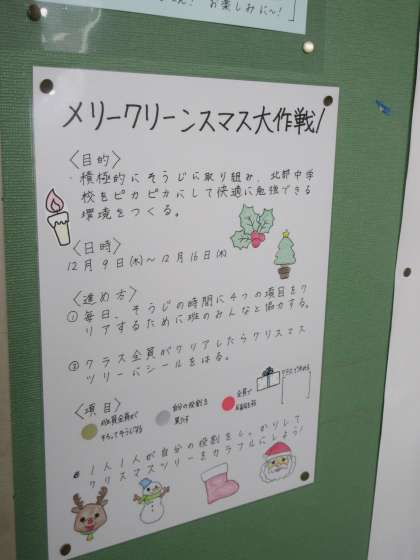 お楽しみに～！
メリークリーンスマス大作戦！
〈目的〉
・積極的にそうじに取り組み、北部中学
校をピカピカにして快適に勉強できる
環境をつくる。
〈日時〉
12月9日(木)～12月16日(木)
〈進め方〉
① 毎日、そうじの時間に4つの項目をク
リアするために班のみんなと協力する。
② クラス全員がクリアしたらクリスマス
ツリーにシールをはる。
〈項目〉
班員全員が
そろってそうじする
自分の役割を
果たす
全員で
クラスで決める
1人1人が自分の役割をしっかりして
クリスマスツリーをカラフルにしよう！